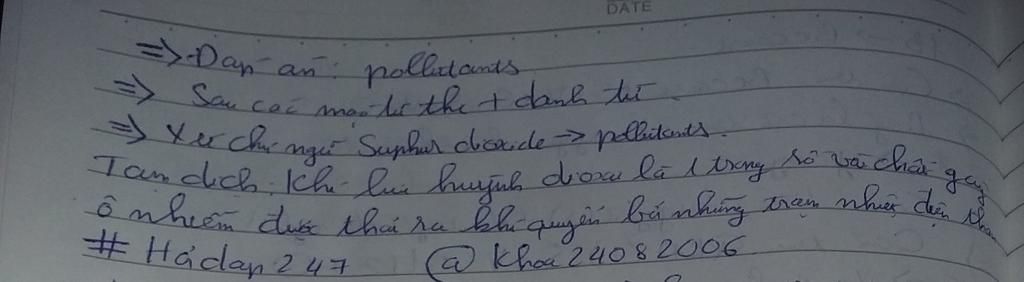 DATE
=> Dap an: pollutants
=> Sau các mạo từ the + danh từ
=> Xet chu ngữ Suphur dioxide -> pollutants.
Tam dich: Khi lưu huỳnh dioxit là 1 trong số vài chất gay
ô nhiễm được thải ra khí quyển bởi những trạm nhiệt điện than
# Hỏidap 247 @ Khoa24082006